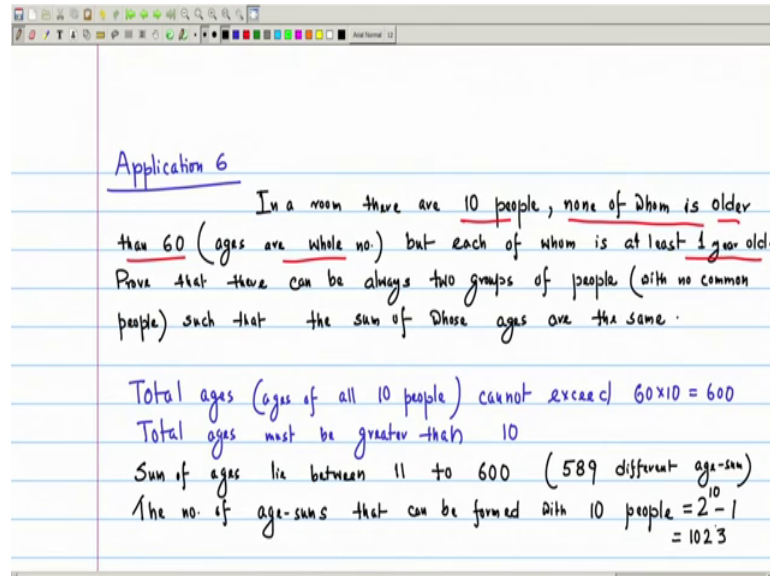 Arial Normal 12
Application 6
In a room there are 10 people, none of whom is older
than 60 (ages are whole no.) but each of whom is at least 1 year old.
Prove that there can be always two groups of people (with no common
people) such that the sum of whose ages are the same.
Total ages (ages of all 10 people) cannot exceed 60×10 = 600
Total ages must be greater than 10
Sum of ages lie between 11 to 600 (589 different age-sum)
The no. of age-sums that can be formed with 10 people = 2¹⁰-1
= 1023